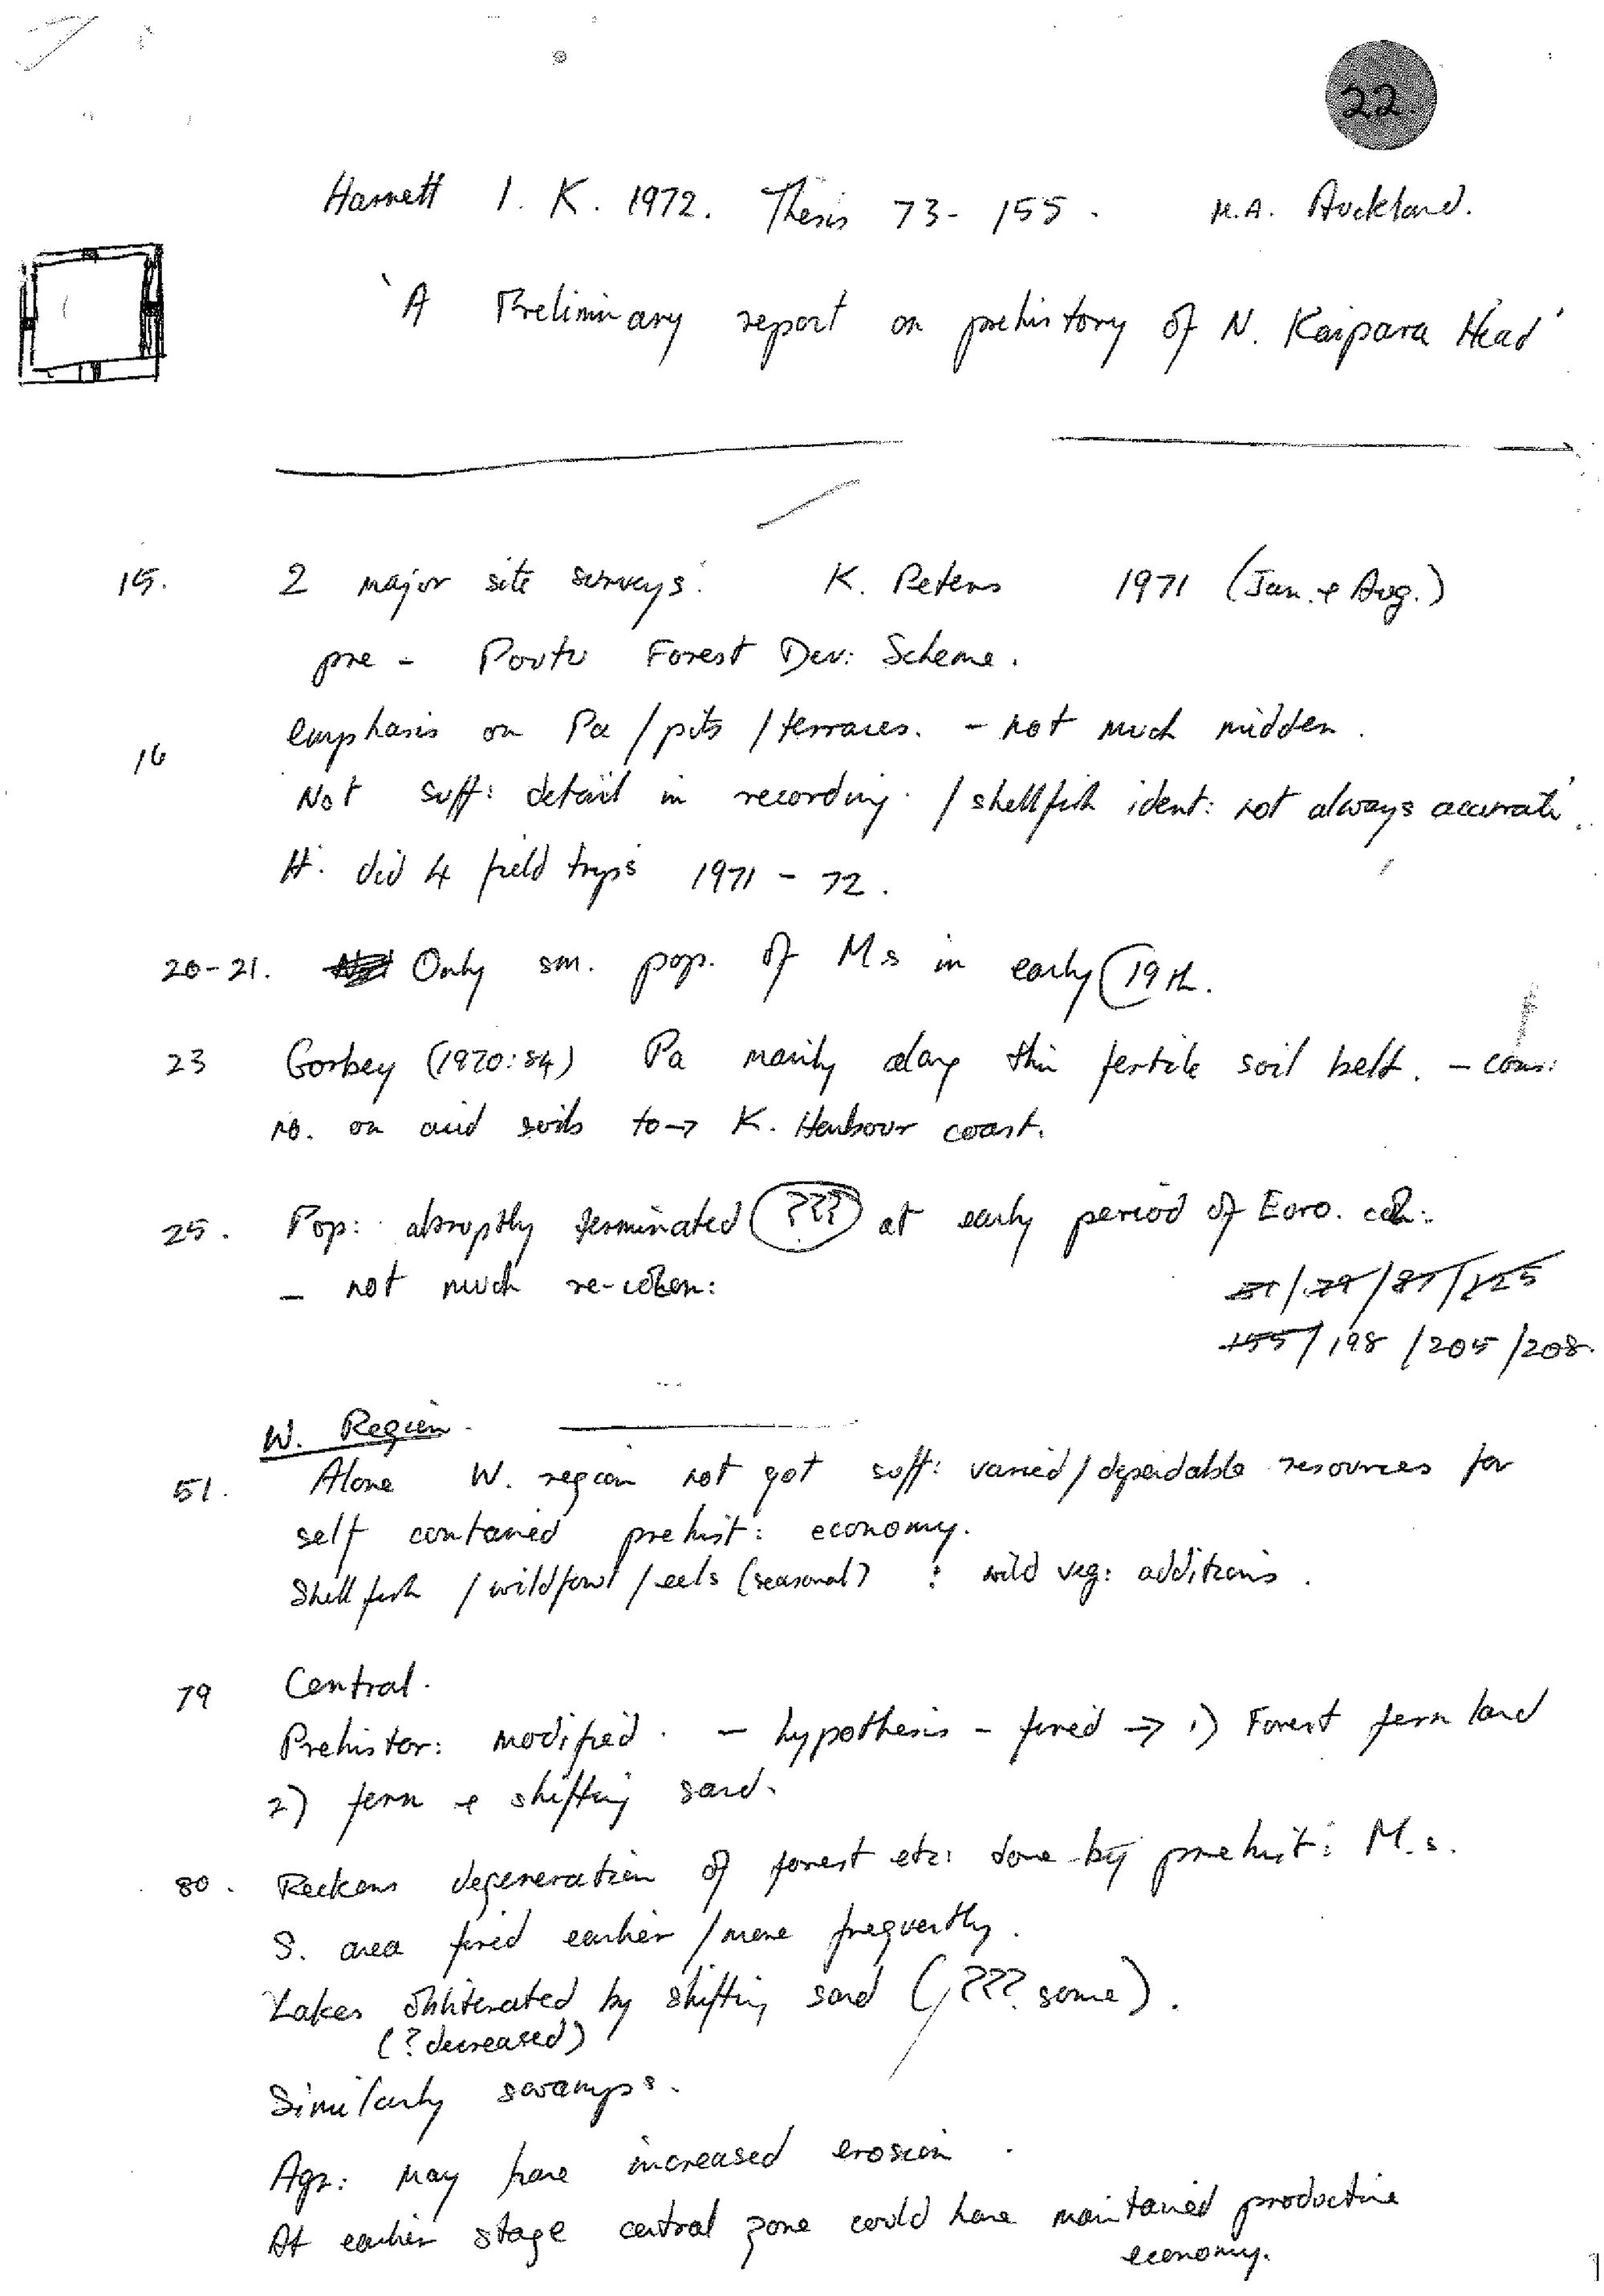 22.
Harnett I. K. 1972. Thesis 73-155. M.A. Auckland.
'A Preliminary report on prehistory of N. Kaipara Head'
15. 2 major site surveys. K. Peters 1971 (Jan. & Aug.)
pre - Pouto Forest Dev: Scheme.
emphasis on Pa / pits / terraces. - not much midden.
16
Not suff: detail in recording. / shellfish ident: not always accurate.
H. did 4 field trips 1971 - 72.
20-21. Only sm. pop. of Ms in early (19th.
23 Gorbey (1970:84) Pa mainly along thin fertile soil belt. - cons:
no. on acid soils to → K. Harbour coast.
25. Pop: abruptly terminated ??? at early period of Euro. col:
- not much re-colon:
51/79/87/125
155/198/205/208.
W. Region.
51. Alone W. region not got suff: varied/dependable resources for
self contained prehist: economy.
Shellfish / wildfowl / eels (seasonal) : wild veg: additions.
79 Central.
Prehistor: modified. - hypothesis - fired → 1) Forest fern land
2) fern & shifting sand.
80. Reckons degeneration of forest etc: done by prehist: M.s.
S. area fired earlier / more frequently.
Lakes obliterated by shifting sand (??? some).
(? decreased)
Similarly swamps.
Agr: may have increased erosion.
At earlier stage central zone could have maintained productive
economy.